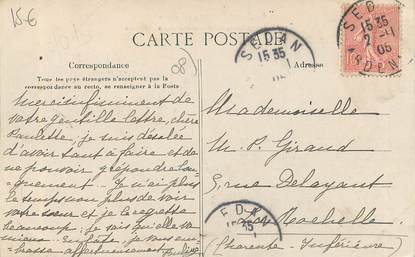 15€
CARTE POSTALE
Correspondance
Tous les pays étrangers n'acceptent pas la
correspondance au recto, se renseigner à la Poste
Adresse
SEDAN
15 35
ARDEN
SEDAN
15 35
Merci infiniment de
votre gentille lettre, chère
Paulette, je suis désolée
d'avoir tant à faire et de
ne pouvoir y répondre lon-
guement. Je n'ai plus
le temps non plus de voir
votre sœur et je le regrette
beaucoup; je sais qu'elle va
mieux. En hâte, je vous em-
brasse affectueusement
Mademoiselle
M. P. Giraud
5, rue Delayant
La Rochelle
(Charente-Inférieure)
EDAN
15 35